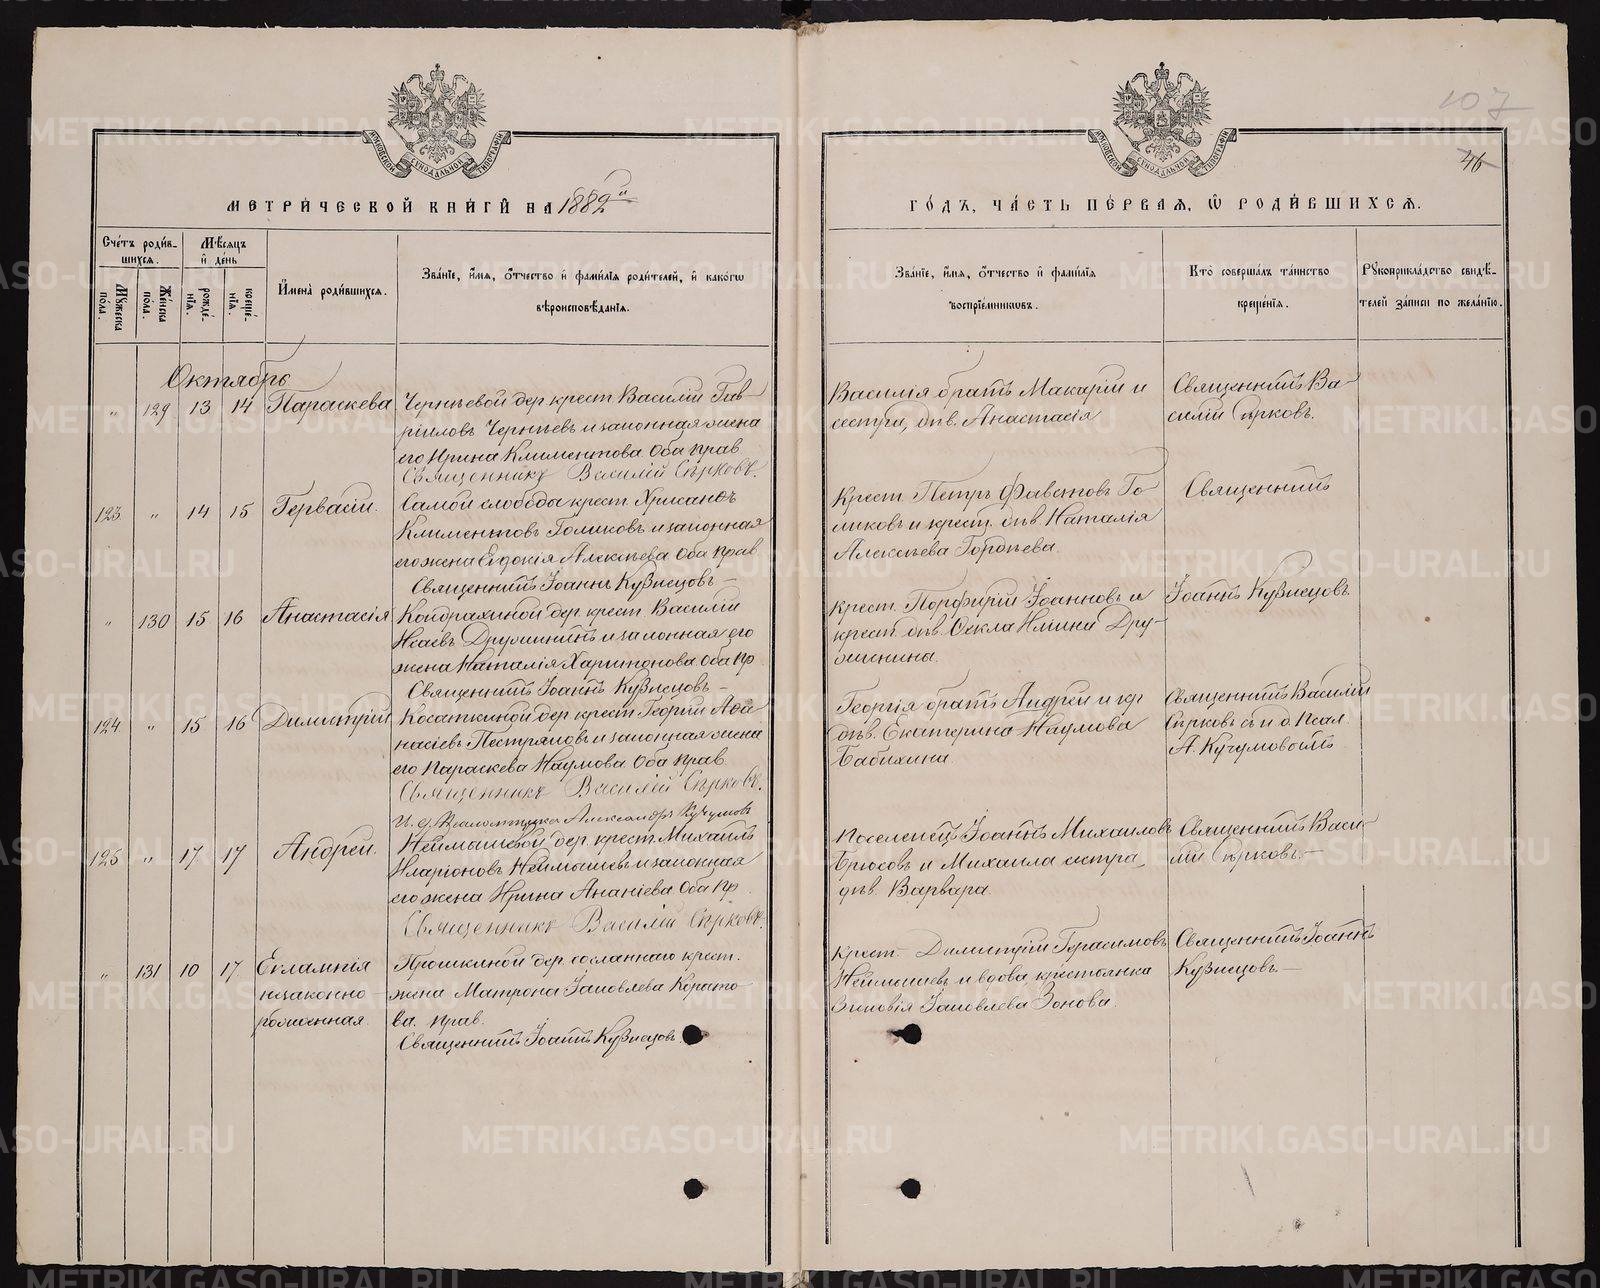 107
46
МОСКОВСКОЙ СѴНОДАЛЬНОЙ ТИПОГРАФІИ
МОСКОВСКОЙ СѴНОДАЛЬНОЙ ТИПОГРАФІИ
МЕТРИ́ЧЕСКОЙ КНИ́ГИ НА 1882й
ГО́ДЪ, ЧА́СТЬ ПЕ́РВАЯ, Ѡ РОДИ́ВШИХСЯ.
Сче́тъ роди́в-
шихся.
Му́жеска пола.
Же́нска пола.
Мѣ́сяцъ
и҆ день
рожде́-
нїя.
креще́-
нїя.
И҆мена̀ роди́вшихся.
Зва́нїе, и҆́мя, ѻ҆́тчество и҆ фами́лїя роди́телей, и҆ како́гѡ
вѣроисповѣ́данїя.
Зва́нїе, и҆́мя, ѻ҆́тчество и҆ фами́лїя
воспрїе́мникѡвъ.
Кто̀ соверша́лъ та́инство
креще́нїя.
Рꙋкоприкла́дство свидѣ́-
телей за́писи по жела́нїю.
Октябрь
" 129 13 14 Параскева
Чернѣевой дер. крест. Василій Гав-
ріиловъ Чернѣевъ и законная жена
его Ирина Климентова оба прав.
Священникъ Василій Сѣрковъ.
Василія братъ Макарій и
сестра, дѣв. Анастасія
Священникъ Ва-
силій Сѣрковъ.
123 " 14 15 Гервасій.
Самой слободы крест. Хрисанѳъ
Климентовъ Голиковъ и законная
его жена Евдокія Алексѣева оба прав.
Священникъ Іоаннъ Кузнецовъ –
Крест. Петръ Фавстовъ Го-
ликовъ и крест. дѣв. Наталія
Алексѣева Гордѣева.
Священникъ
Іоаннъ Кузнецовъ.
" 130 15 16 Анастасія
Кондрахиной дер. крест. Василій
Исаевъ Дружининъ и законная его
жена Наталія Харитонова оба пр.
Священникъ Іоаннъ Кузнецовъ –
Крест. Порфирій Іоанновъ и
крест. дѣв. Ѳекла Ильина Дру-
жинина.
124 " 15 16 Димитрій
Косаткиной дер. крест. Георгій Аѳа-
насіевъ Пестряковъ и законная жена
его Параскева Наумова оба прав.
Священникъ Василій Сѣрковъ.
И. д. Псаломщика Александръ Кучумовъ
Георгія братъ Андрей и кр.
дѣв. Екатерина Наумова
Бабихина.
Священникъ Василій
Сѣрковъ съ и. д. Псал.
А. Кучумовымъ
125 " 17 17 Андрей.
Неймышевой дер. крест. Михаилъ
Иларіоновъ Неймышевъ и законная
его жена Ирина Ананіева оба пр.
Священникъ Василій Сѣрковъ.
Поселенецъ Іоаннъ Михаиловъ
Брюсовъ и Михаила сестра,
дѣв. Варвара.
Священникъ Васи-
лій Сѣрковъ. –
" 131 10 17 Евлампія
незаконно-
рожденная.
Прошкиной дер. сосланнаго крест.
жена Матрона Іаковлева Корото-
ва. прав.
Священникъ Іоаннъ Кузнецовъ
Крест. Димитрій Герасимовъ
Неймышевъ и вдова, крестьянка
Зиновія Іаковлева Зонова.
Священникъ Іоаннъ
Кузнецовъ. –